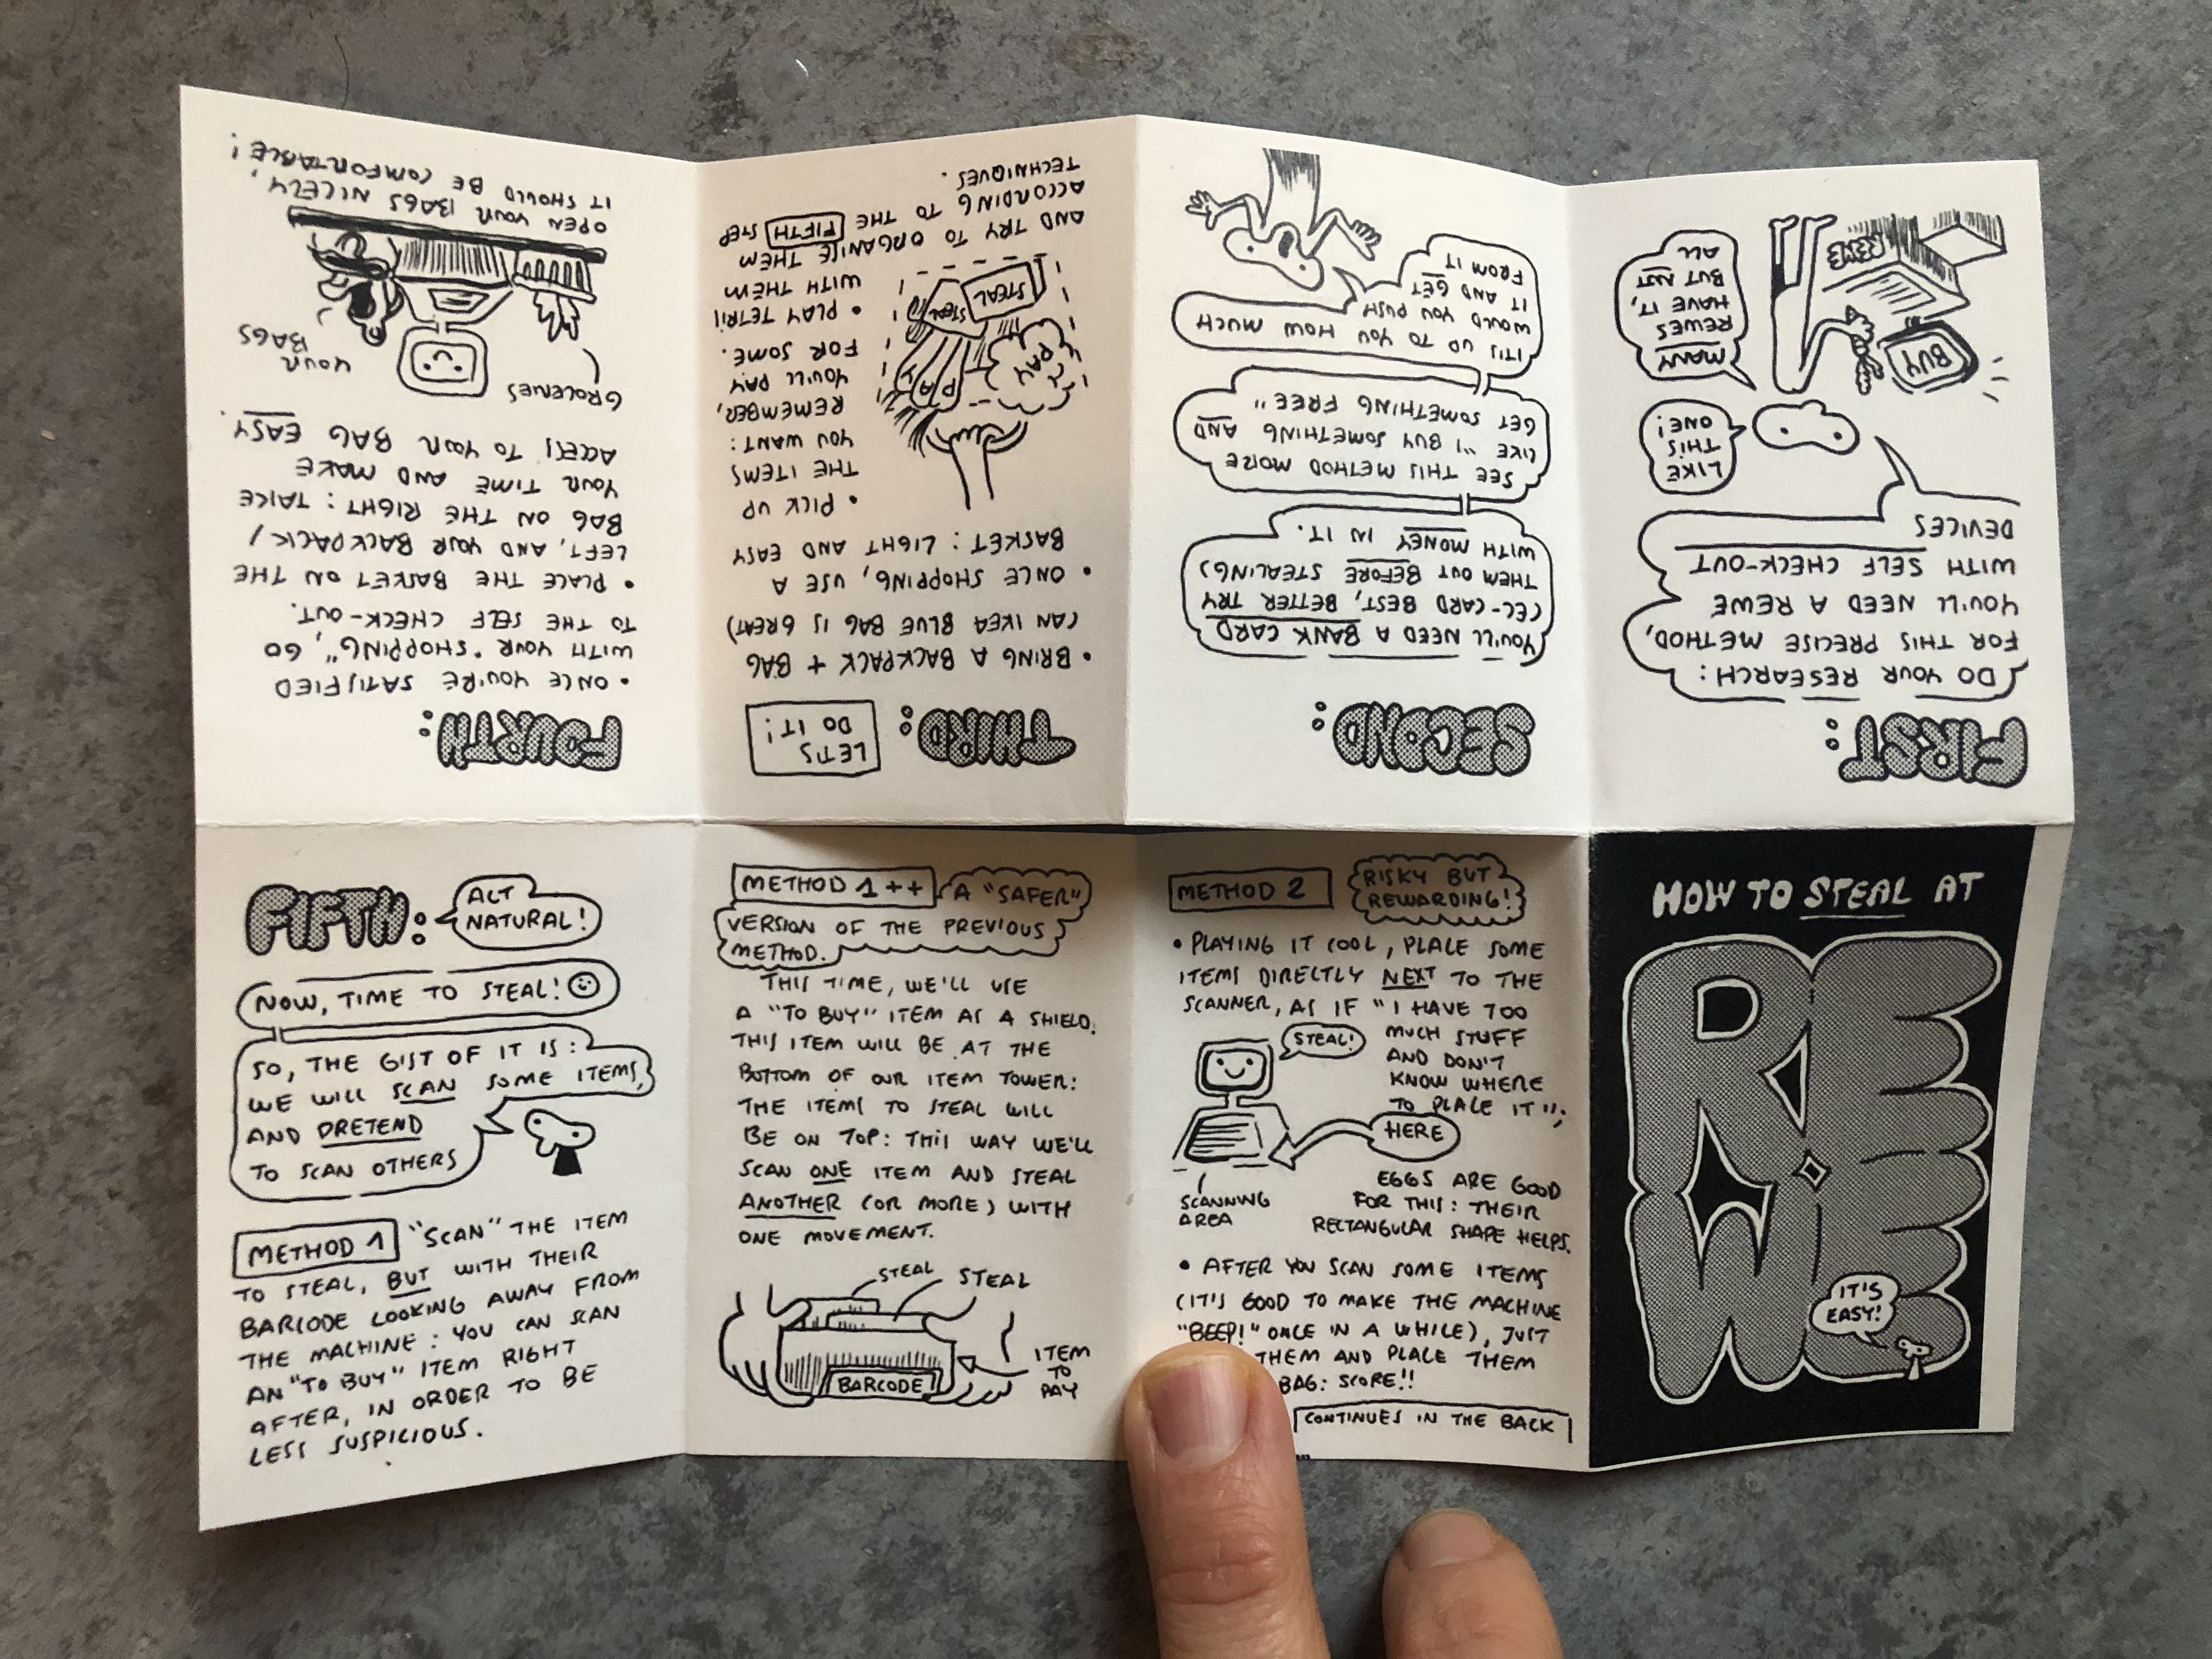 HOW TO STEAL AT
REWE
IT'S
EASY!
FIRST:
DO YOUR RESEARCH:
FOR THIS PRECISE METHOD,
YOU'LL NEED A REWE
WITH SELF CHECK-OUT
DEVICES
LIKE
THIS
ONE!
MANY
REWES
HAVE IT,
BUT NOT
ALL
BUY
REWE
SECOND:
YOU'LL NEED A BANK CARD
(EC-CARD BEST, BETTER TRY
THEM OUT BEFORE STEALING)
WITH MONEY IN IT.
SEE THIS METHOD MORE
LIKE "I BUY SOMETHING AND
GET SOMETHING FREE"
IT'S UP TO YOU HOW MUCH
WOULD YOU PUSH
IT AND GET
FROM IT
THIRD:
LET'S
DO IT!
• BRING A BACKPACK + BAG
(AN IKEA BLUE BAG IS GREAT)
• ONCE SHOPPING, USE A
BASKET: LIGHT AND EASY
• PICK UP
THE ITEMS
YOU WANT:
REMEMBER,
YOU'LL PAY
FOR SOME.
• PLAY TETRIS
WITH THEM
AND TRY TO ORGANISE THEM
ACCORDING TO THE FIFTH STEP
TECHNIQUES.
PAY
PAY
STEAL
STEAL
FOURTH:
• ONCE YOU'RE SATISFIED
WITH YOUR "SHOPPING", GO
TO THE SELF CHECK-OUT.
• PLACE THE BASKET ON THE
LEFT, AND YOUR BACKPACK/
BAG ON THE RIGHT: TAKE
YOUR TIME AND MAKE
ACCESS TO YOUR BAG EASY.
GROCERIES
YOUR
BAGS
OPEN YOUR BAGS NICELY,
IT SHOULD BE COMFORTABLE!
FIFTH:
ACT
NATURAL!
NOW, TIME TO STEAL!
SO, THE GIST OF IT IS:
WE WILL SCAN SOME ITEMS,
AND PRETEND
TO SCAN OTHERS
METHOD 1 "SCAN" THE ITEM
TO STEAL, BUT WITH THEIR
BARCODE LOOKING AWAY FROM
THE MACHINE: YOU CAN SCAN
AN "TO BUY" ITEM RIGHT
AFTER, IN ORDER TO BE
LESS SUSPICIOUS.
METHOD 1++ A "SAFER"
VERSION OF THE PREVIOUS
METHOD.
THIS TIME, WE'LL USE
A "TO BUY" ITEM AS A SHIELD.
THIS ITEM WILL BE AT THE
BOTTOM OF OUR ITEM TOWER:
THE ITEMS TO STEAL WILL
BE ON TOP: THIS WAY WE'LL
SCAN ONE ITEM AND STEAL
ANOTHER (OR MORE) WITH
ONE MOVEMENT.
STEAL
STEAL
ITEM
TO
PAY
BARCODE
METHOD 2
RISKY BUT
REWARDING!
• PLAYING IT COOL, PLACE SOME
ITEMS DIRECTLY NEXT TO THE
SCANNER, AS IF "I HAVE TOO
MUCH STUFF
AND DON'T
KNOW WHERE
TO PLACE IT";
STEAL!
HERE
SCANNING
AREA
EGGS ARE GOOD
FOR THIS: THEIR
RECTANGULAR SHAPE HELPS.
• AFTER YOU SCAN SOME ITEMS
(IT'S GOOD TO MAKE THE MACHINE
"BEEP!" ONCE IN A WHILE), JUST
THEM AND PLACE THEM
BAG: SCORE!!
CONTINUES IN THE BACK